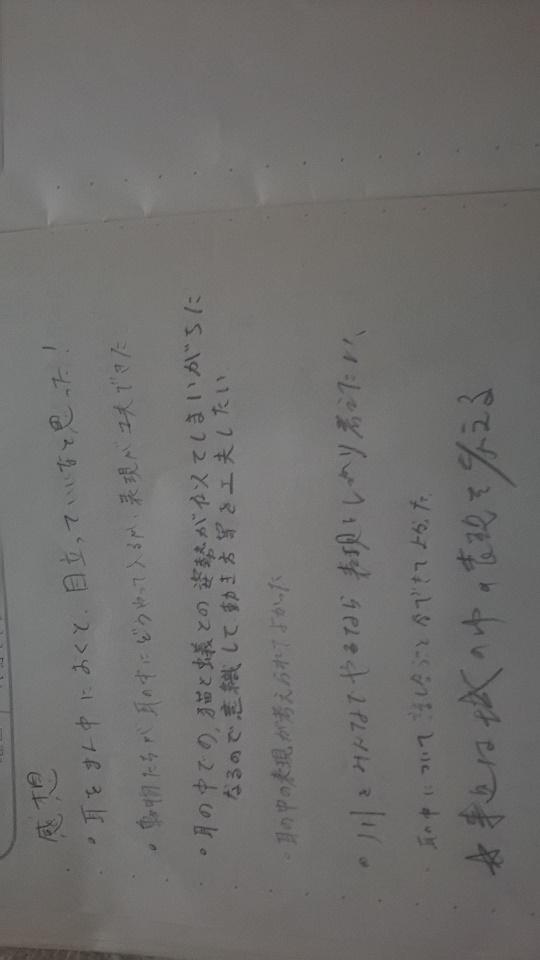 感想
・耳をまん中におくと、目立っていいなと思った!
・動物たちが耳の中にどうやって入るか、表現が工夫できた
・耳の中での、猫と蟻との姿勢が似てしまいがちに
なるので意識して動き方等を工夫したい
・耳の中の表現が考えられてよかった
・川をみんなでやるなら表現をしっかり考えたい、
・耳の中について話し合うことができてよかった。
の中の表現を